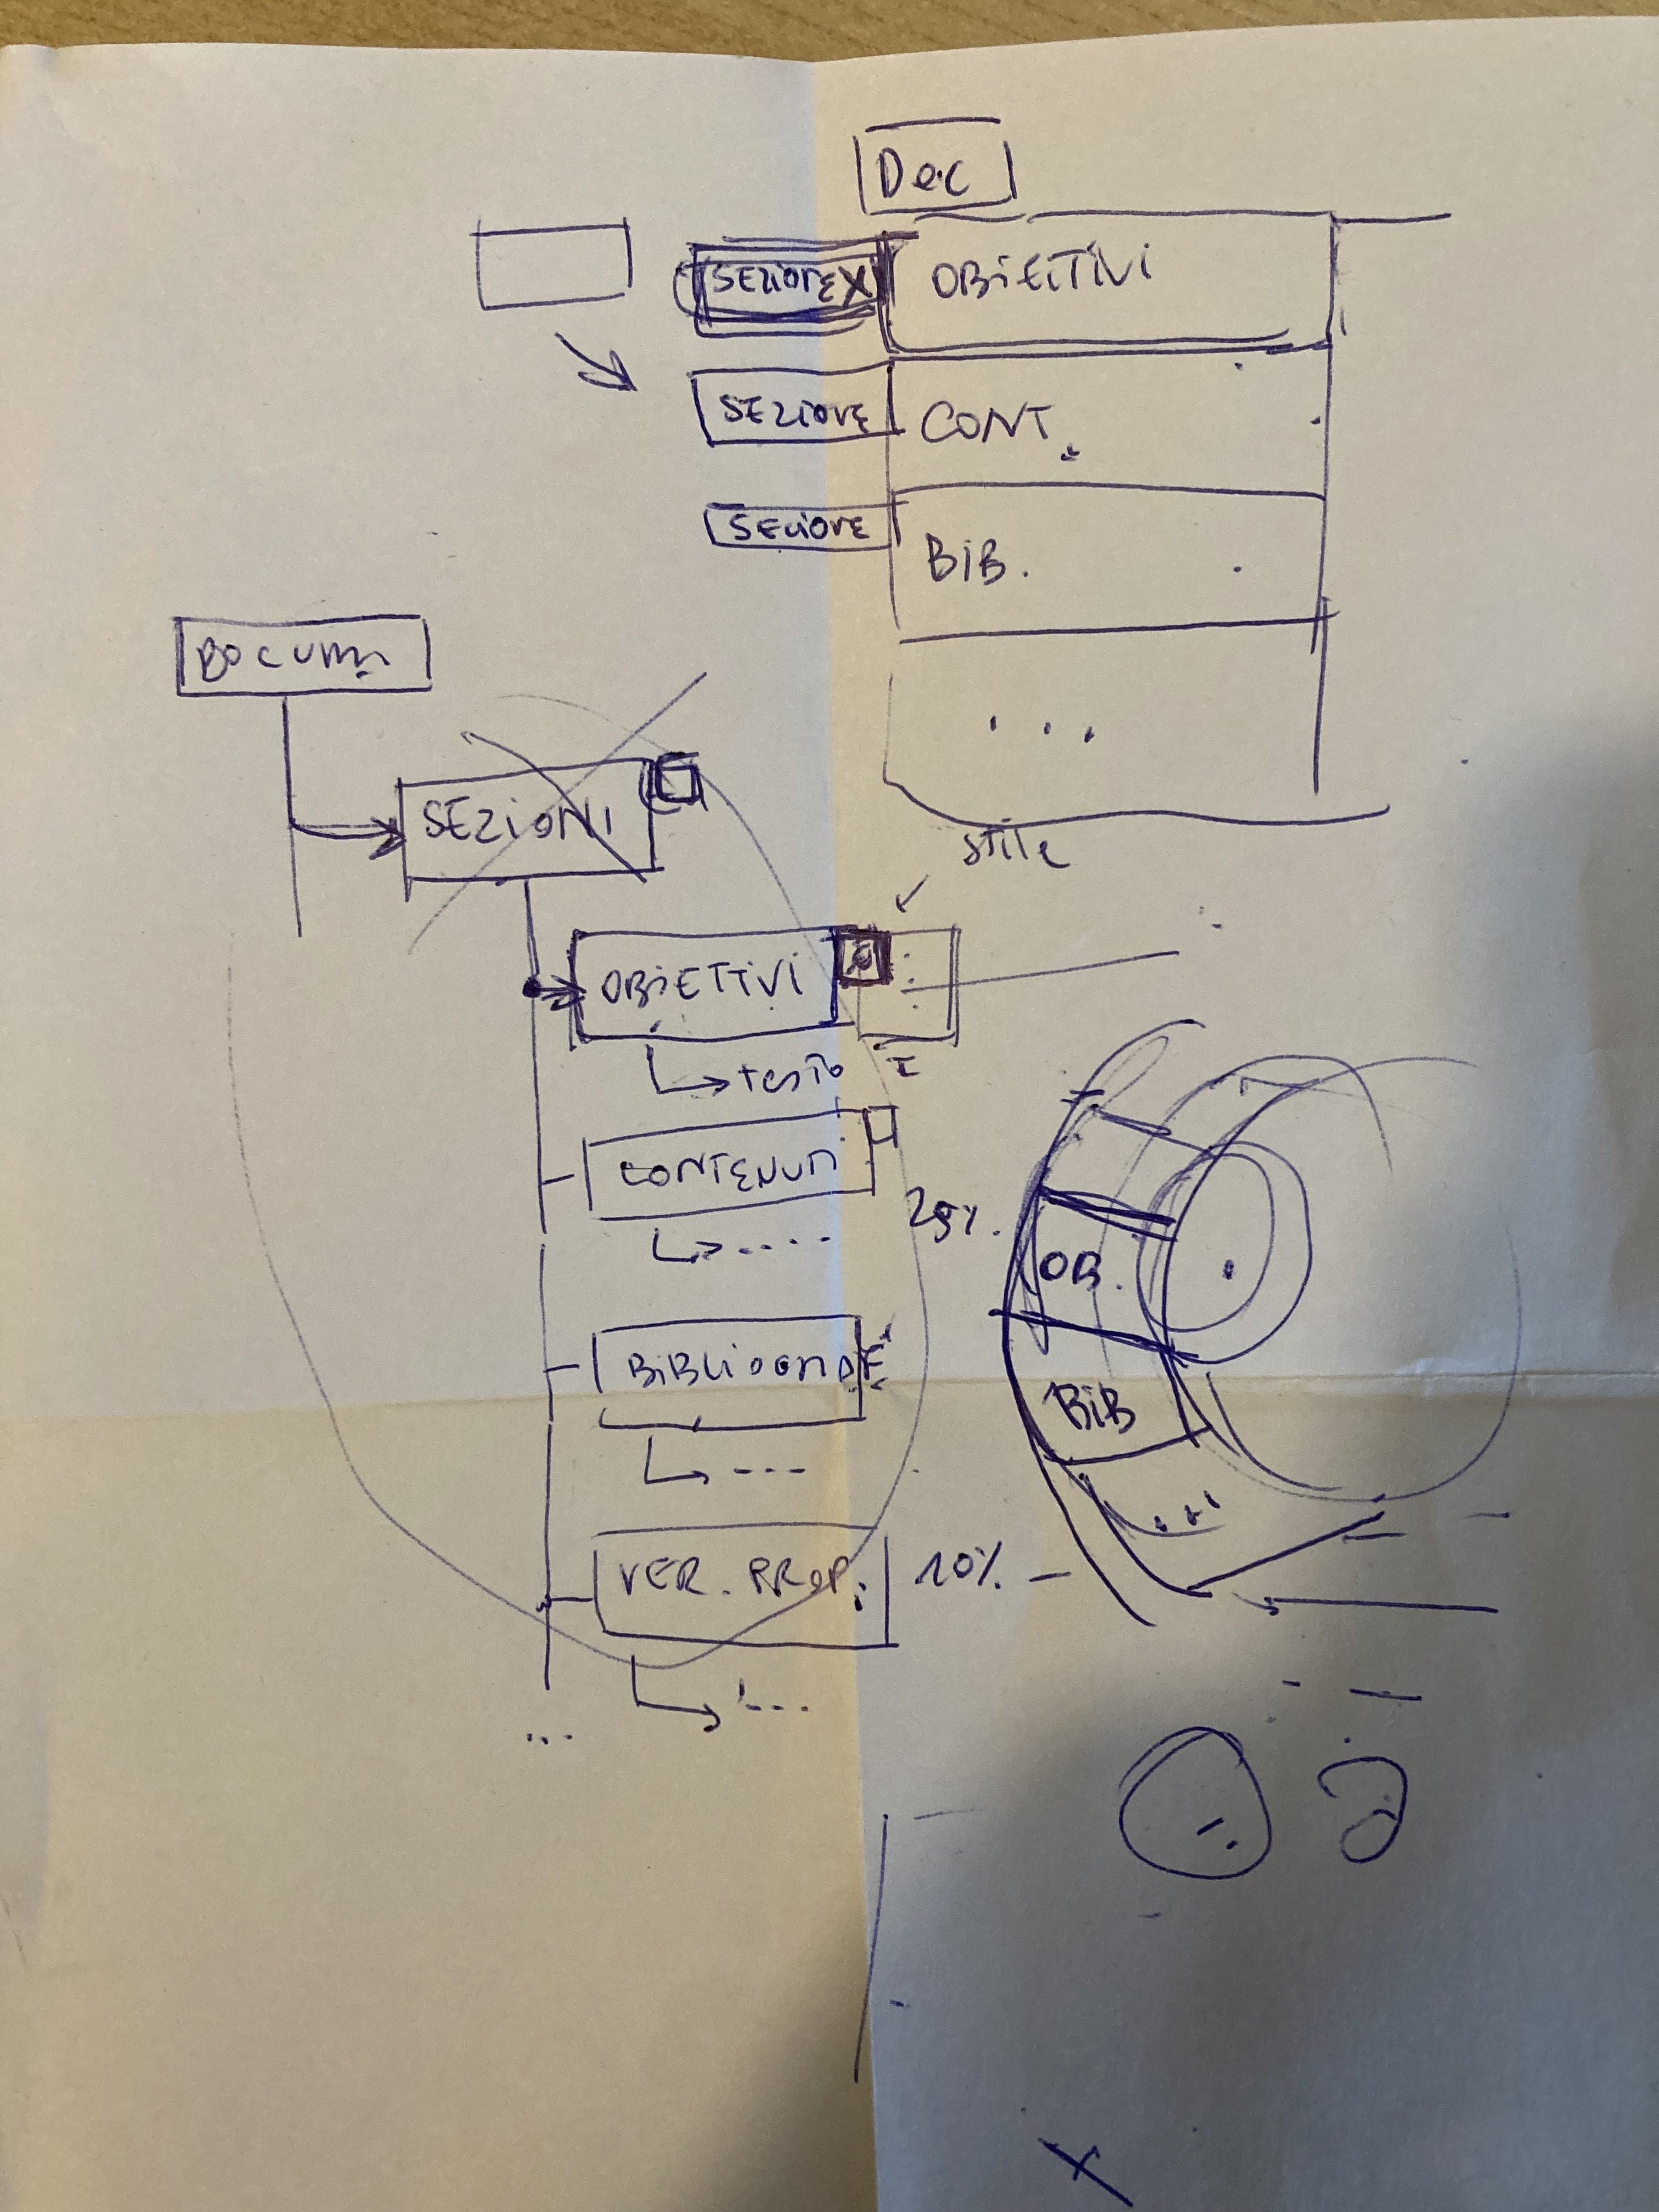 Doc
SEZIONE X OBIETTIVI
SEZIONE CONT.
SEZIONE BIB.
...
DOCUM
SEZIONI
stile
OBIETTIVI
testo
CONTENUTI
....
25%.
OB.
BIB
...
---
VER. PROP.
10%
...